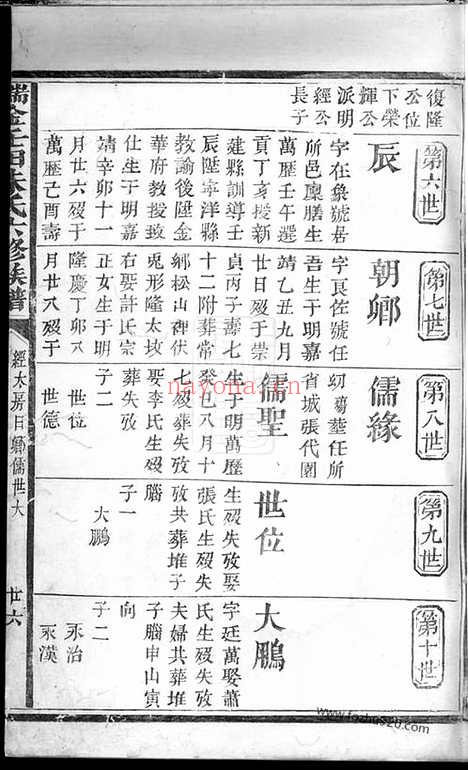 復隆
公位
下榮
輝公
派明
經公
長子
第六世
辰
字在象號居
所邑廩膳生
萬歷壬午選
貢丁亥授新
建縣訓導壬
辰陞寧洋縣
教諭後陞金
華府教授致
仕生于明嘉
靖辛卯十一
月廿六歿于
萬歷己酉壽
第七世
朝卿
字良佐號任
吾生于明嘉
靖乙丑九月
廿日歿于崇
貞丙子壽七
十二附葬常
鄉松山神伏
兎形隆太坟
右娶許氏宗
正女生于明
隆慶丁卯八
月廿八歿于
第八世
儒緣
幼殤葬任所
省城張代園
儒聖
生于明萬歷
癸巳八月十
七歿葬失攷
娶李氏生歿
葬失攷
子二
世位
世德
第九世
世位
生歿失攷娶
張氏生歿失
攷共葬堆子
腦
子一
大鵬
第十世
大鵬
字廷萬娶蕭
氏生歿失攷
夫婦共葬堆
子腦申山寅
向
子二
永治
永漢
瑞金壬田朱氏六修族譜
經太房日卿儒世大
廿六
nayona.cn
www.fozhus20.com